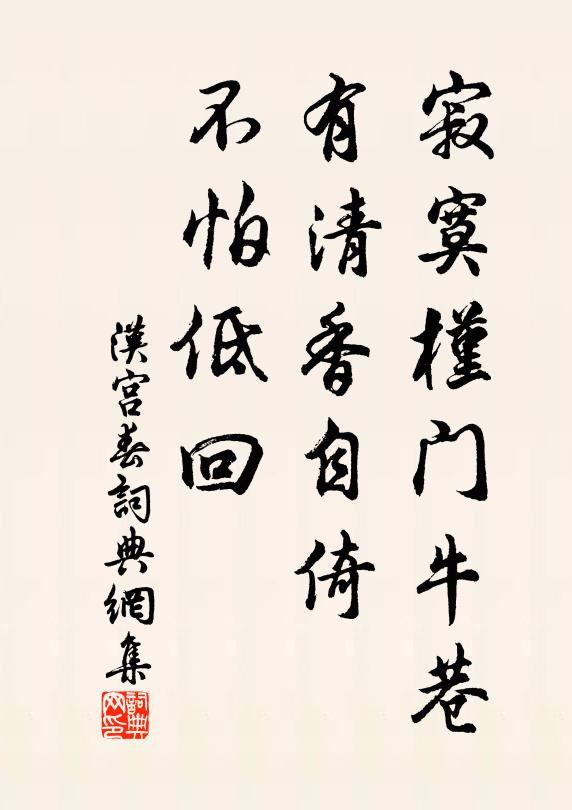 寂寞槿门牛巷
有清香自倚
不怕低回
漢宫春詞典網集
詞典网印